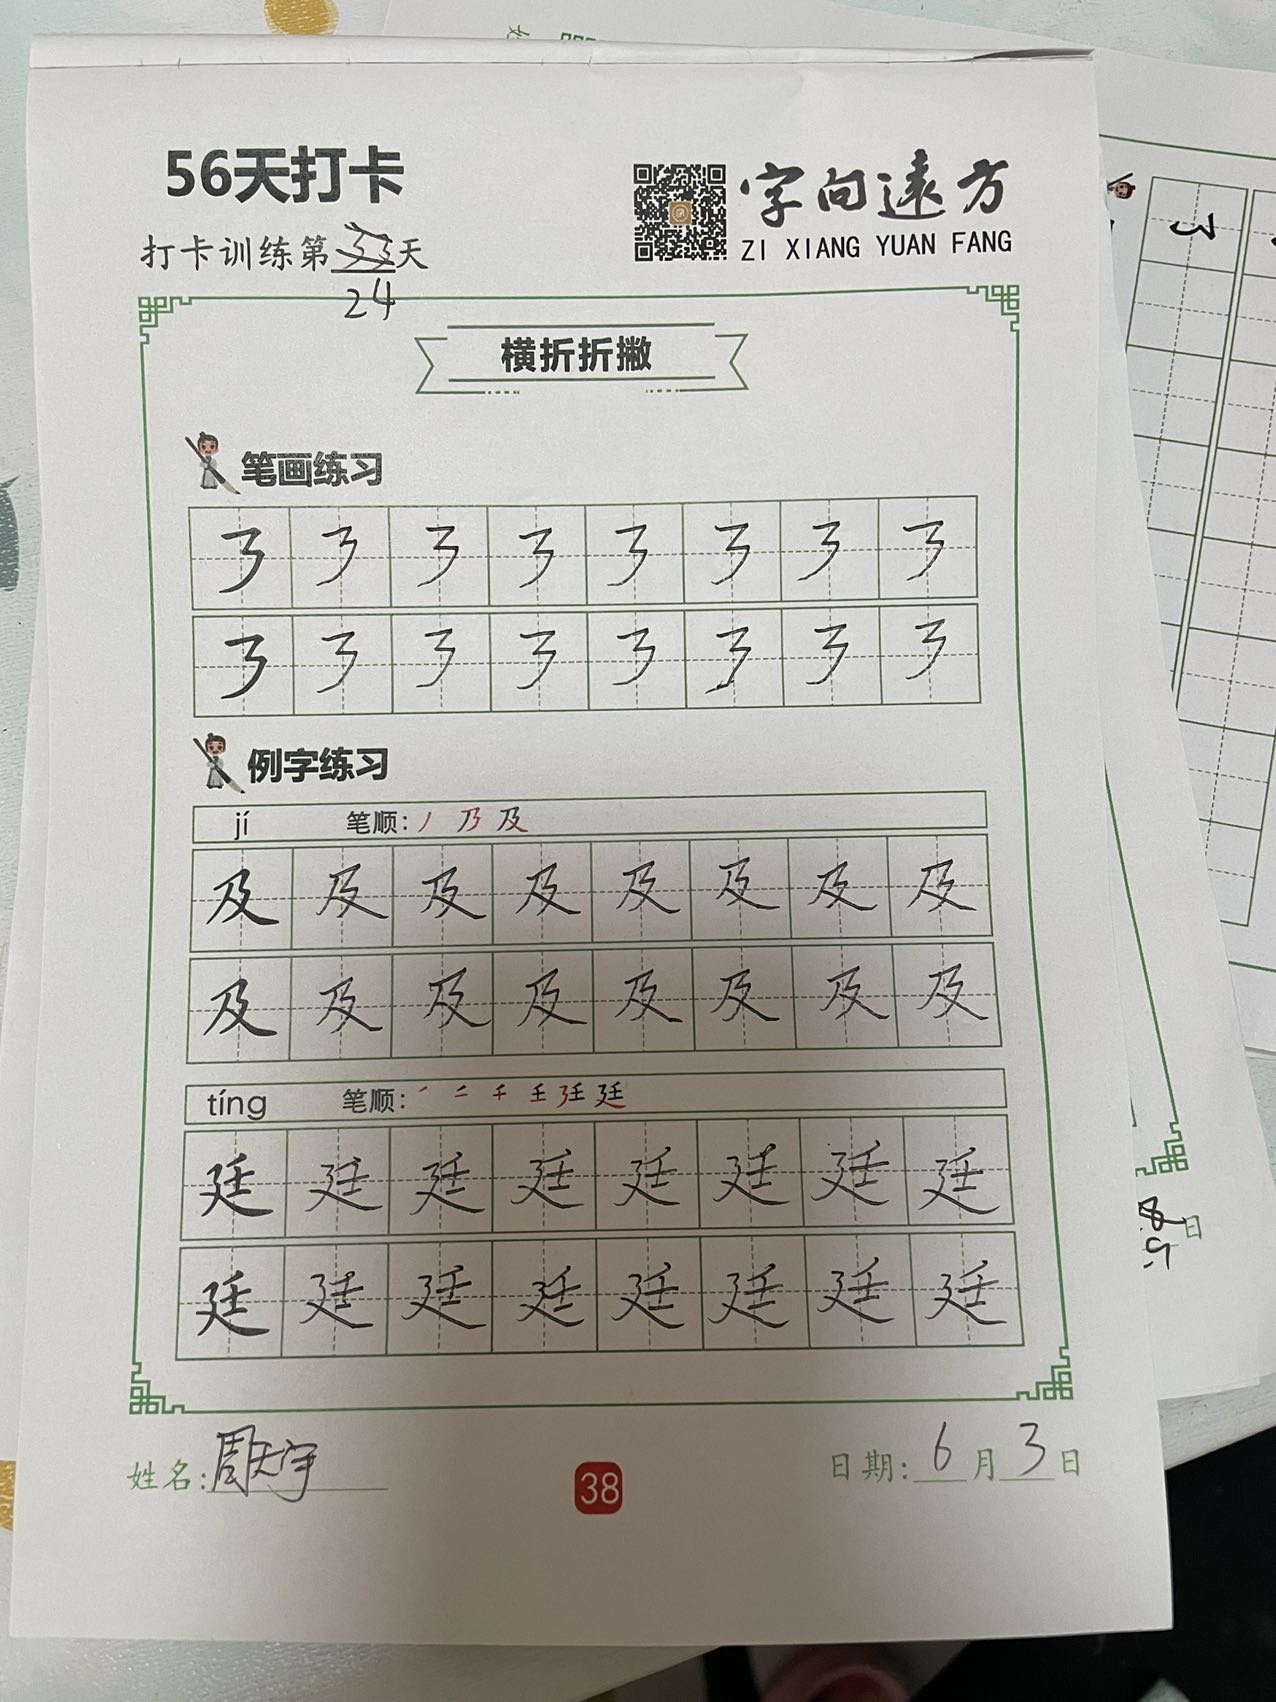 56天打卡
字向遠方
ZI XIANG YUAN FANG
打卡训练第33天
24
横折折撇
笔画练习
㇋ ㇋ ㇋ ㇋ ㇋ ㇋ ㇋ ㇋
㇋ ㇋ ㇋ ㇋ ㇋ ㇋ ㇋ ㇋
例字练习
jí 笔顺: 丿 乃 及
及 及 及 及 及 及 及 及
及 及 及 及 及 及 及 及
tíng 笔顺: ㇒ 二 千 壬 廷 廷
廷 廷 廷 廷 廷 廷 廷 廷
廷 廷 廷 廷 廷 廷 廷 廷
姓名: 周天宇
38
日期: 6月3日
日